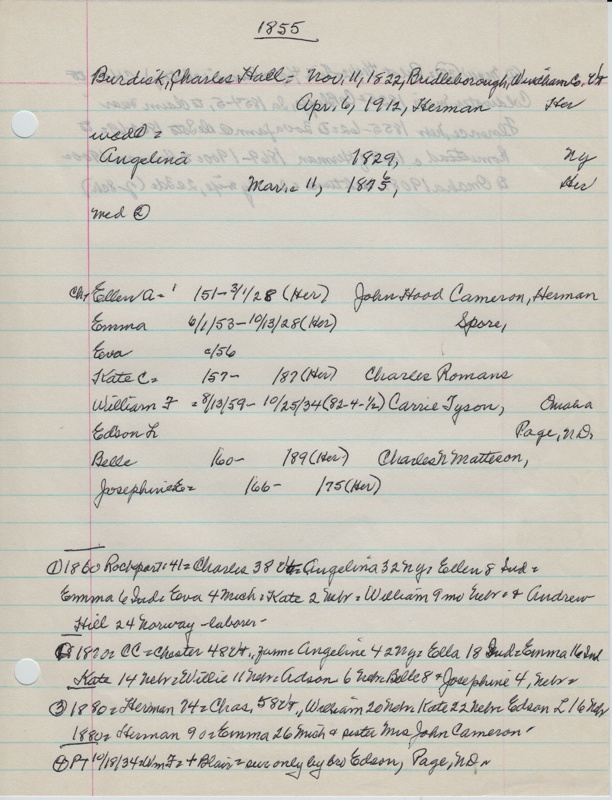 1855
Burdick, Charles Hall = Nov. 11, 1822, Bridleborough, Windham Co. Vt
Apr. 6, 1912, Herman Her
wad =
Angelina 1829, NY
Mar. = 11, 1875, Her
med ②
ch, Ellen A = ' /51 - 3/1/28 (Her) John Hood Cameron, Herman
Emma 6/1/53 - 10/13/28 (Her) Spore,
Eva c/56
Kate C = /57 - /87 (Her) Charles Romans
William F = 8/13/59 - 10/25/34 (82-4-½) Carrie Tyson, Omaha
Edson L Page, N.D.
Belle /60 - /89 (Her) Charles N Matteson,
Josephine E = /66 - /75 (Her)
① 1860 Rockport = 41 = Charles 38 Vt = Angelina 32 Ny = Ellen 8 Ind =
Emma 6 Ind = Eva 4 Mich = Kate 2 Nebr = William 9 mo Nebr = + Andrew
Hill 24 Norway - laborer -
② 1870 = CC = Chester 48 Vt., farm = Angeline 42 Ny = Ella 18 Ind = Emma 16 Ind
Kate 14 Nebr = Willie 11 Nebr = Adson 6 Nebr = Belle 8 + Josephine 4, Nebr =
③ 1880 = Herman 74 = Chas. 58 Vt., William 20 Nebr Kate 22 Nebr = Edson L 16 Nebr
1880 = Herman 90 = Emma 26 Mich + sister Mrs John Cameron -
④ PT 10/18/34 = Wm F = + Blair = sur only by bro Edson, Page, N.D.